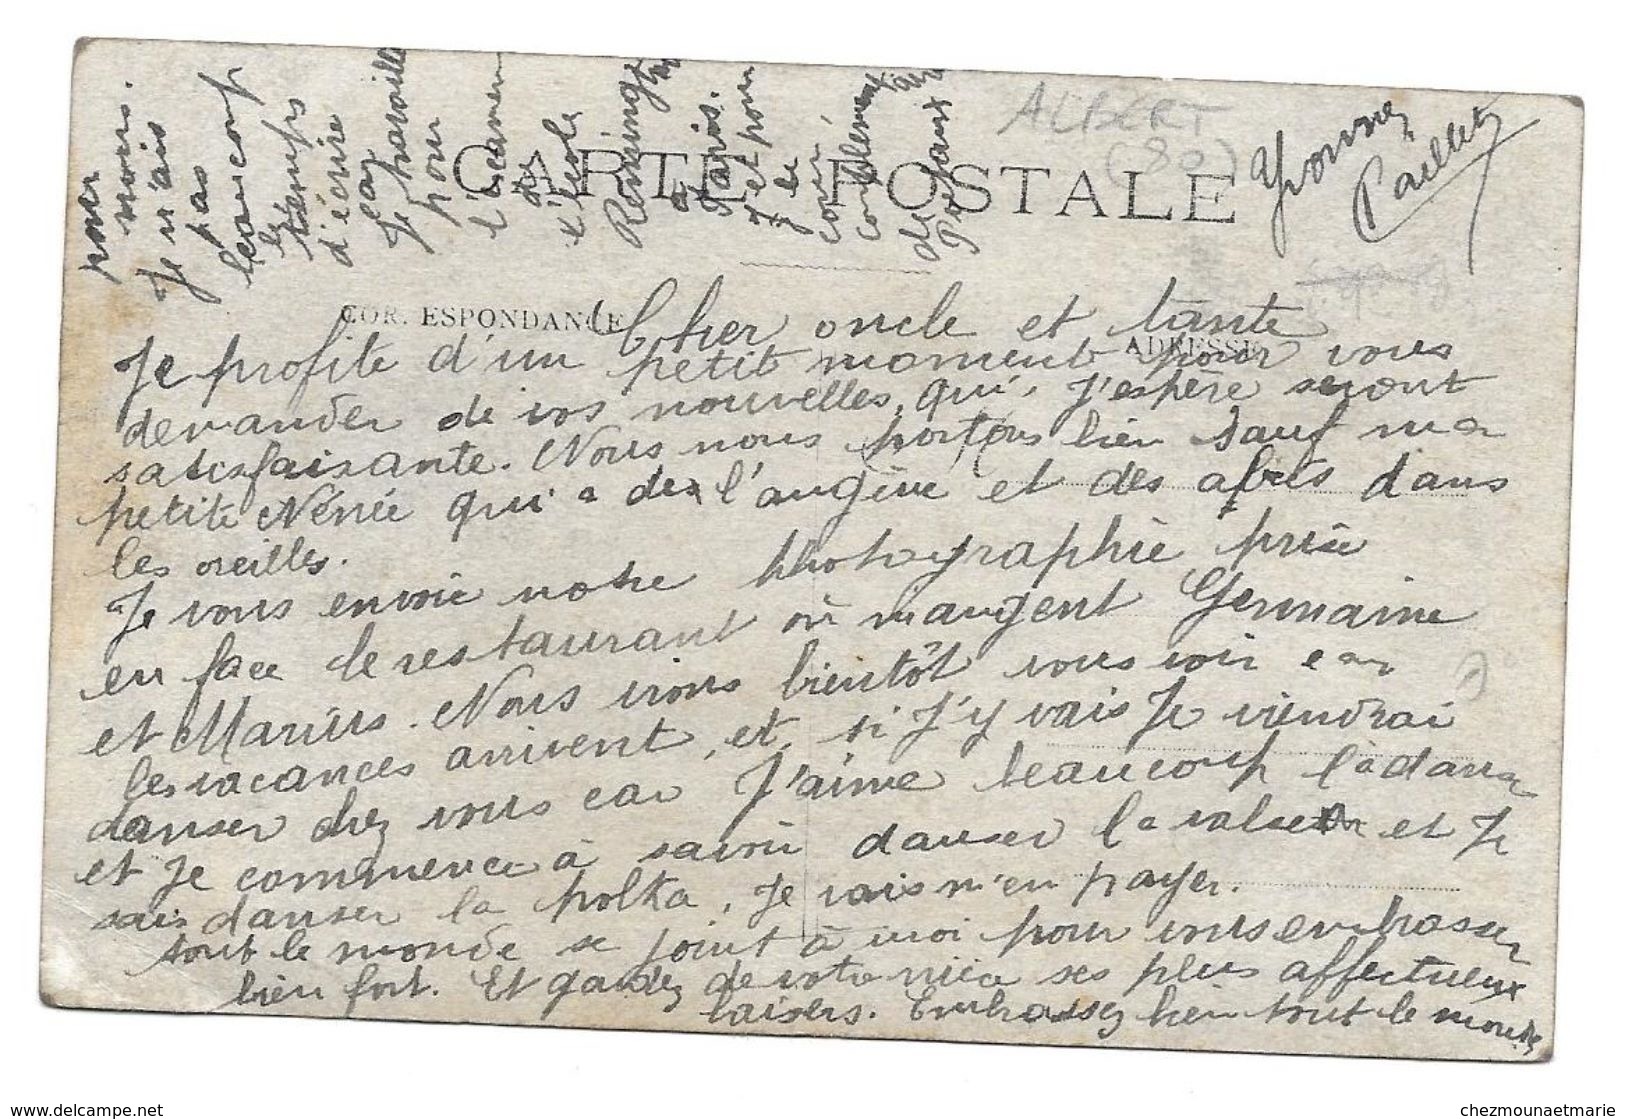 CARTE POSTALE
ALBERT
(80)
CORRESPONDANCE
ADRESSE
Cher oncle et tante
Je profite d'un petit moment pour vous
demander de vos nouvelles, qui, j'espère seront
satisfaisante. Nous nous portons bien sauf ma
petite Nénée qui a des l'angine et des abcés dans
les oreilles.
Je vous envoie notre photographie prise
en face le restaurant où mangent Germaine
et Marius. Nous irons bientôt vous voir car
les vacances arrivent, et, si j'y vais je viendrai
danser chez vous car j'aime beaucoup la danse
et je commence à savoir danser la valse et je
sais danser la polka, je vais m'en payer.
tout le monde se joint à moi pour vous embrasser
bien fort. Et gardez de votre nièce ses plus affectueux
baisers. Embrassez bien tout le monde
pour
nous.
Je n'ais
pas
beaucoup
le
temps
d'écrire
car
Je travaille
pour
l'éxamen
de
l'école
Remington
à
Paris.
et pour
le
cour
complément
de
Yvonne
Paillet
chezmounaetmarie
www.delcampe.net